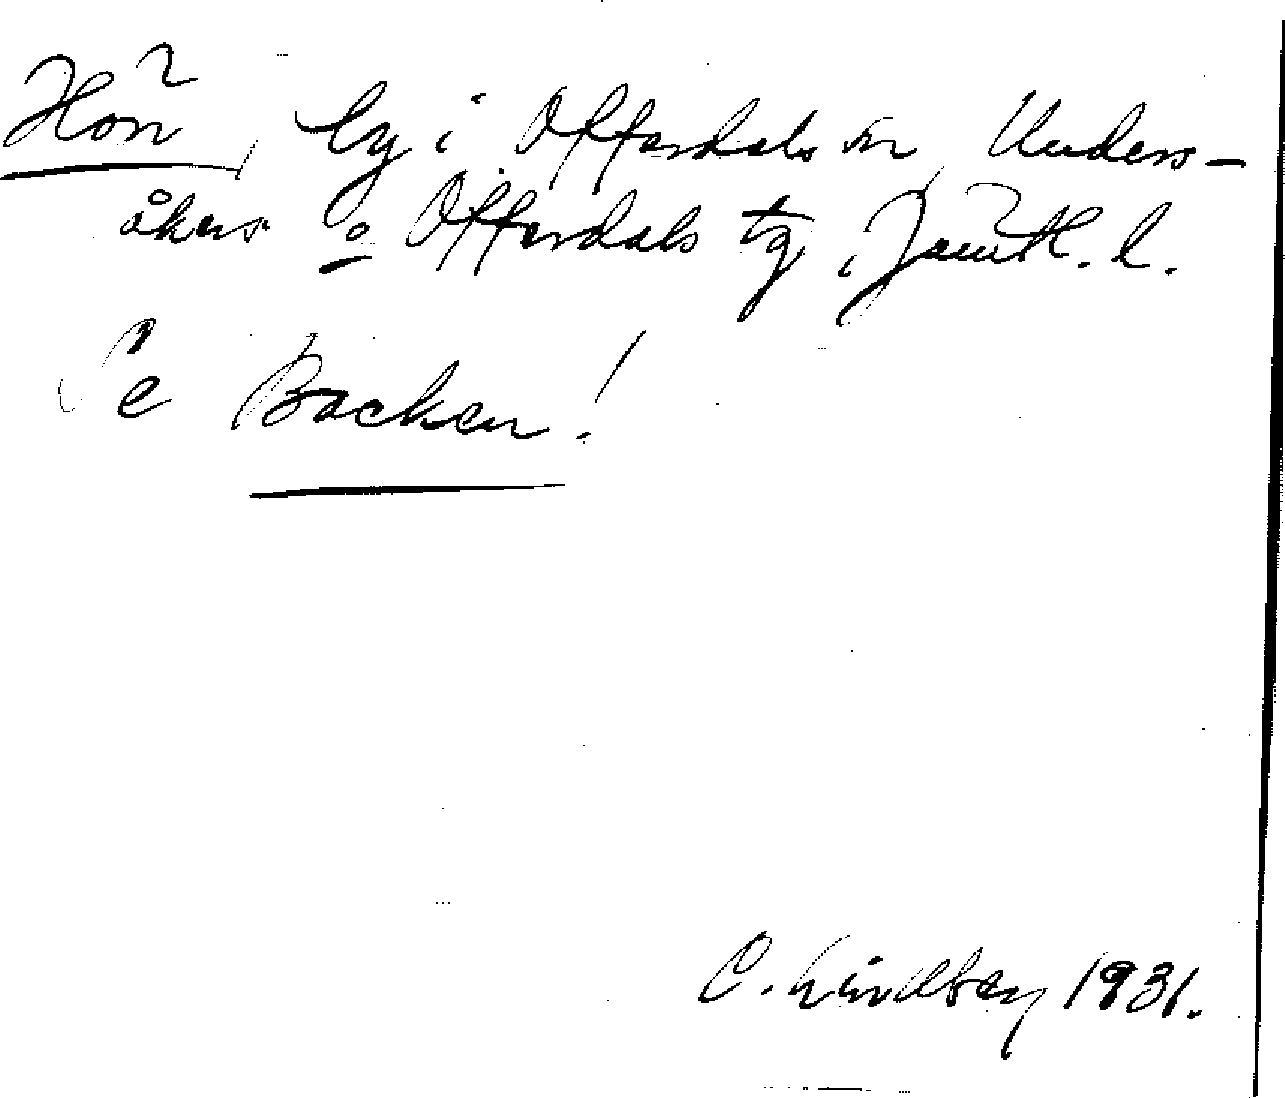 Hon, by i Offerdals sn, Unders-
åkers o Offerdals tg, Jämtl. l.
Se Backen!
C. Lindberg 1931.